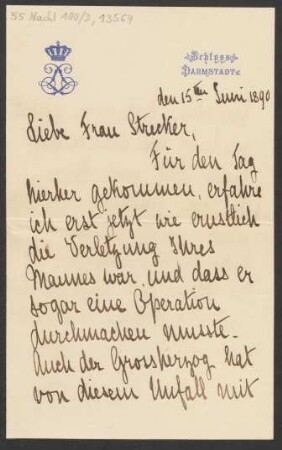 55 Nachl 100/3, 13564
Schloss
DARMSTADT
den 15ten Juni 1890
Liebe Frau Strecker,
Für den Tag
hierher gekommen, erfahre
ich erst jetzt wie ernstlich
die Verletzung Ihres
Mannes war, und dass er
sogar eine Operation
durchmachen musste.
Auch der Grossherzog hat
von diesem Unfall mit